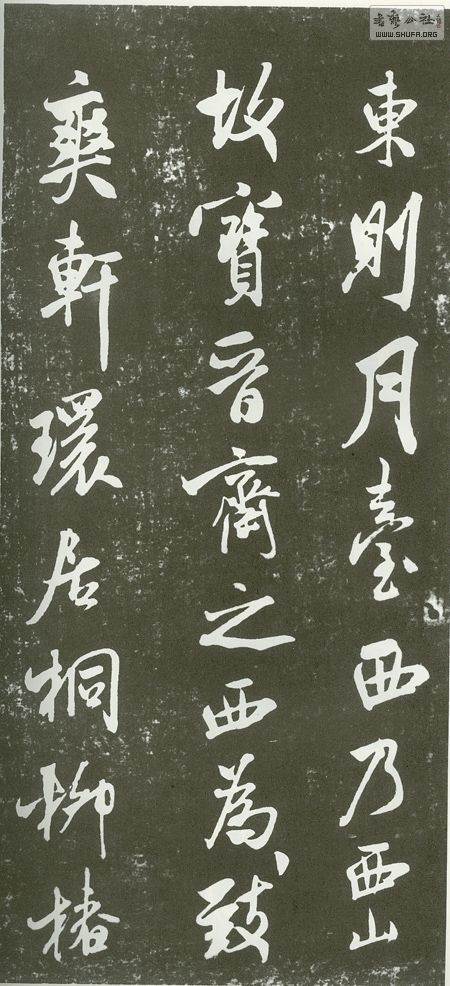 東則月臺西乃西山
故寶晉齋之西為致
爽軒環居桐柳椿
書藝公社
WWW.SHUFA.ORG